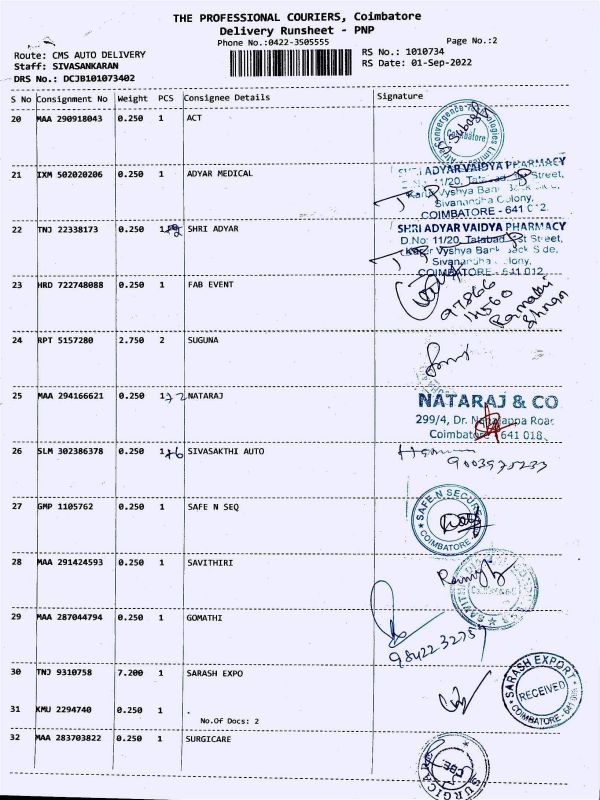 THE PROFESSIONAL COURIERS, Coimbatore
Delivery Runsheet - PNP
Phone No.:0422-3505555 Page No.:2
Route: CMS AUTO DELIVERY RS No.: 1010734
Staff: SIVASANKARAN RS Date: 01-Sep-2022
DRS No.: DCJB101073402
S No Consignment No Weight PCS Consignee Details Signature
20 MAA 290918043 0.250 1 ACT
Coimbatore
21 IXM 502020206 0.250 1 ADYAR MEDICAL
SHRI ADYAR VAIDYA PHARMACY
D.No: 11/20, Tatabad Street,
Vyshya Bank Back Side,
Sivanandha Colony,
COIMBATORE - 641 012.
22 TNJ 22338173 0.250 1 SHRI ADYAR
SHRI ADYAR VAIDYA PHARMACY
D.No: 11/20, Tatabad 1st Street,
Vyshya Bank Back Side,
Sivanandha Colony,
COIMBATORE - 641 012
23 HRD 722748088 0.250 1 FAB EVENT
97866
14560
24 RPT 5157280 2.750 2 SUGUNA
25 MAA 294166621 0.250 1 NATARAJ
NATARAJ & CO
299/4, Dr. Nanjappa Road
Coimbatore 641 018.
26 SLM 302386378 0.250 1 SIVASAKTHI AUTO
9003975233
27 GMP 1105762 0.250 1 SAFE N SEQ
SAFE N SECURE
COIMBATORE
28 MAA 291424593 0.250 1 SAVITHIRI
29 MAA 287044794 0.250 1 GOMATHI
9842232757
30 TNJ 9310758 7.200 1 SARASH EXPO
SARASH EXPORT
RECEIVED
COIMBATORE - 641
31 KMU 2294740 0.250 1 .
No.Of Docs: 2
32 MAA 283703822 0.250 1 SURGICARE
CBE